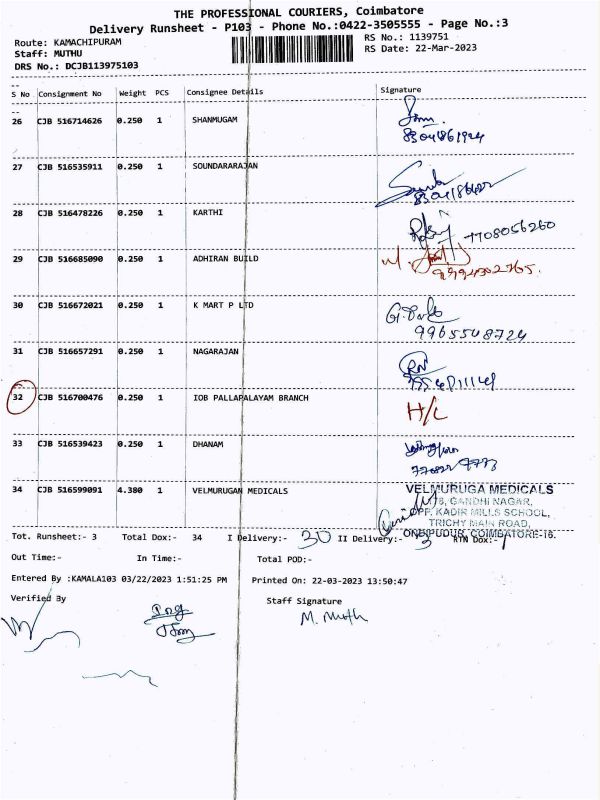 THE PROFESSIONAL COURIERS, Coimbatore
Delivery Runsheet - P103 - Phone No.:0422-3505555 - Page No.:3
Route: KAMACHIPURAM RS No.: 1139751
Staff: MUTHU RS Date: 22-Mar-2023
DRS No.: DCJB113975103
S No Consignment No Weight PCS Consignee Details Signature
26 CJB 516714626 0.250 1 SHANMUGAM
27 CJB 516535911 0.250 1 SOUNDARARAJAN
28 CJB 516478226 0.250 1 KARTHI
7708056260
29 CJB 516685090 0.250 1 ADHIRAN BUILD
9994302765.
30 CJB 516672021 0.250 1 K MART P LTD
9965548724
31 CJB 516657291 0.250 1 NAGARAJAN
32 CJB 516700476 0.250 1 IOB PALLAPALAYAM BRANCH H/L
33 CJB 516539423 0.250 1 DHANAM
34 CJB 516599091 4.380 1 VELMURUGAN MEDICALS VELMURUGA MEDICALS
GANDHI NAGAR,
OPP. KADIR MILLS SCHOOL,
TRICHY MAIN ROAD,
ONDIPUDUR, COIMBATORE-16.
Tot. Runsheet:- 3 Total Dox:- 34 I Delivery:- 30 II Delivery:- 3 RTN Dox:- 1
Out Time:- In Time:- Total POD:-
Entered By :KAMALA103 03/22/2023 1:51:25 PM Printed On: 22-03-2023 13:50:47
Verified By Staff Signature
M. Muth